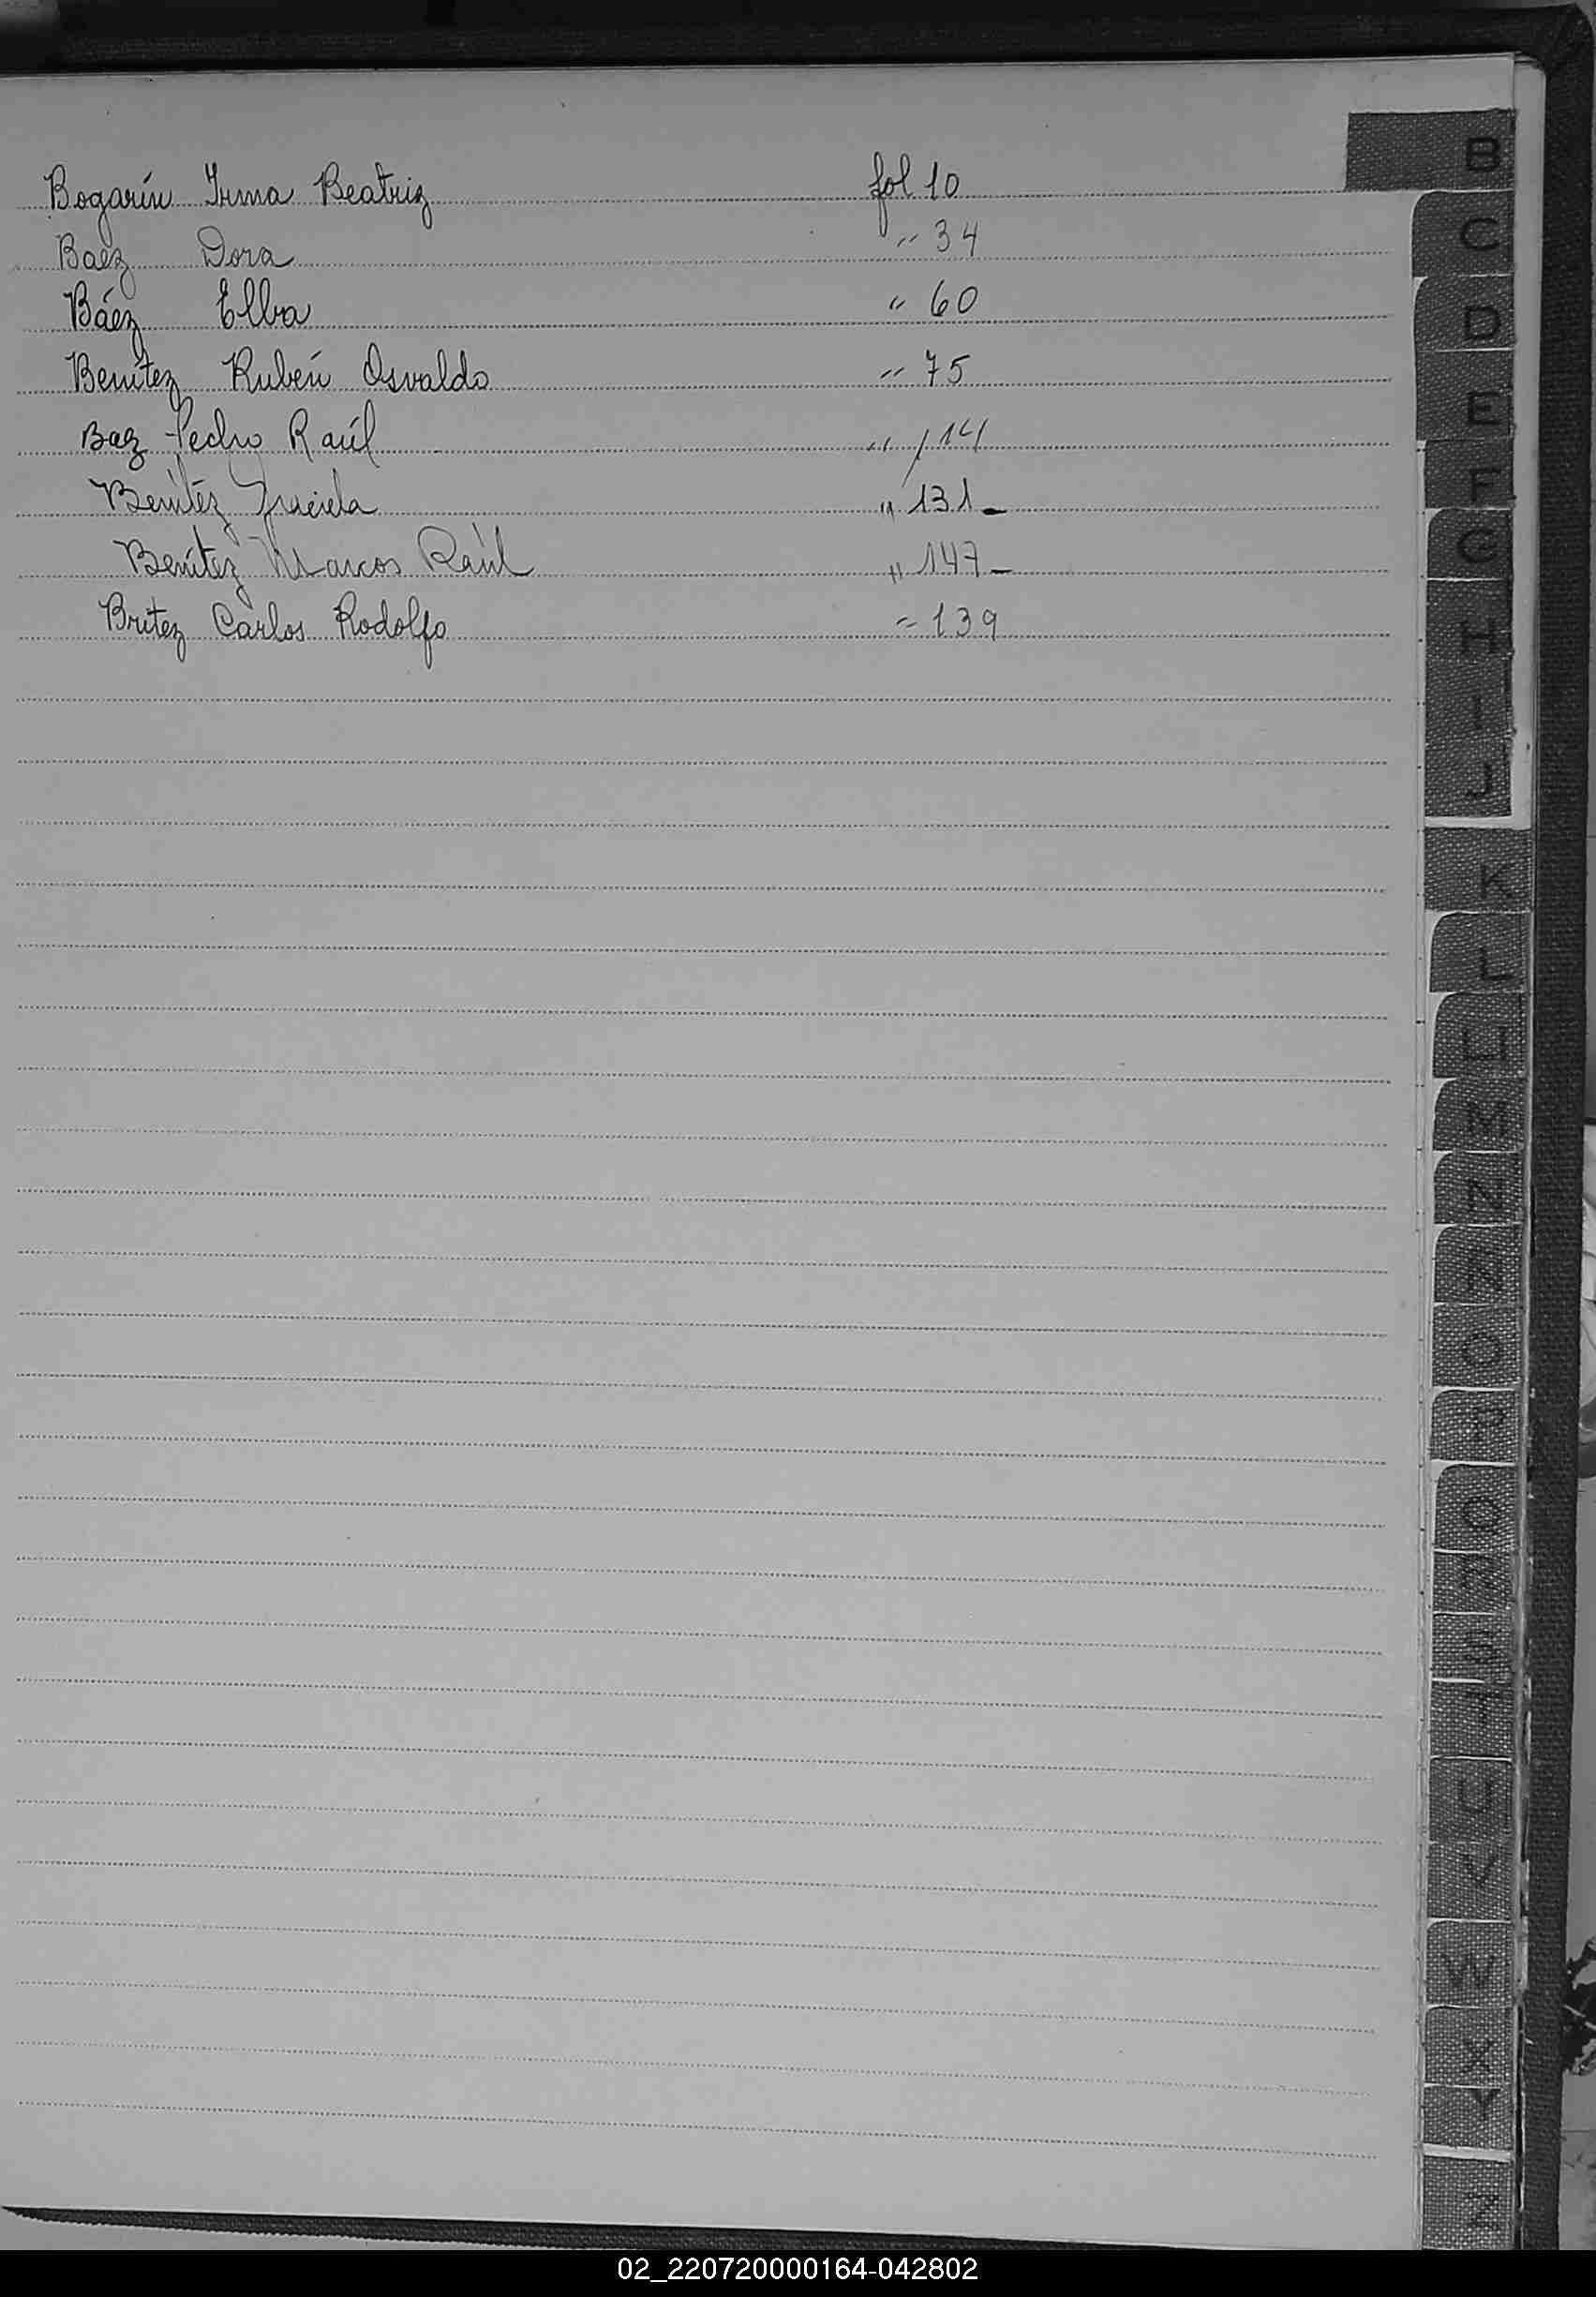 Bogarín Irma Beatriz fol 10
Baéz Dora " 34
Báez Elba " 60
Benítez Rubén Osvaldo " 75
Baez Pedro Raúl " 114
Benítez Graciela " 131-
Benítez Marcos Raúl " 147-
Britez Carlos Rodolfo " 139
B
C
D
E
F
G
H
I
J
K
L
LL
M
N
Ñ
O
P
Q
R
S
T
U
V
W
X
Y
Z
02_220720000164-042802